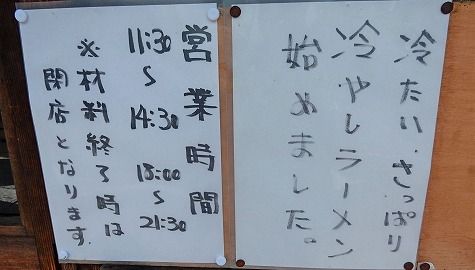 冷たい、さっぱり
冷やしラーメン
始めました。
営業時間
11:30
〜
14:30
18:00
〜
21:30
※材料終了時は
閉店となります。